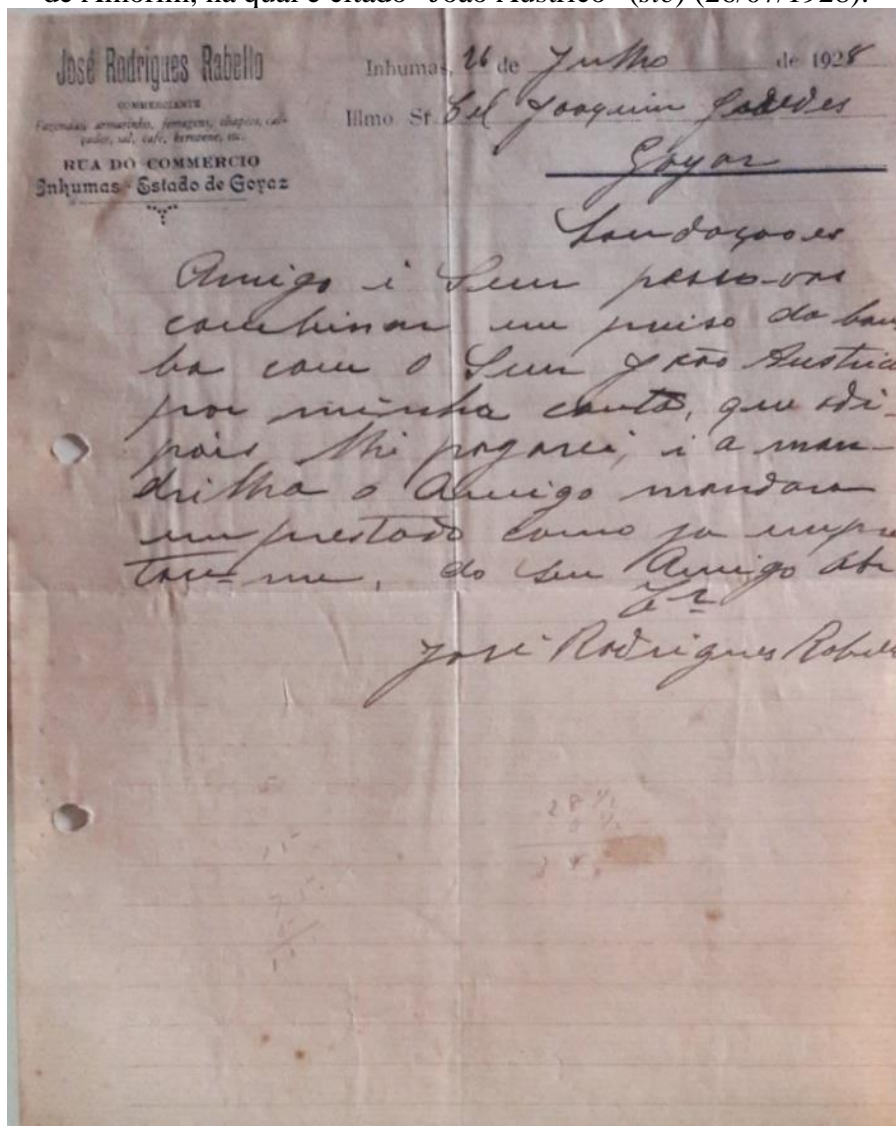 de Amorim, na qual é citado "João Austrico" (sic) (26/07/1928).
José Rodrigues Rabello
COMMERCIANTE
Fazendas, armarinho, ferragens, chapéos, cal-
çados, sal, café, kerozene, etc.
RUA DO COMMERCIO
Inhumas - Estado de Goyaz
Inhumas, 26 de Julho de 1928
Illmo Sr. Cel Joaquim Guedes
Goyaz
Saudaçoes
Amigo i Snr passo-vos
combinar um priso da bom
ba com o Snr João Austric
por minha conta, que adi
pois lhi pagarei, i a man-
drilha o Amigo mandara
umprestado como ja umpre
tou-me, do seu Amigo Obr
José Rodrigues Rabell
28 1/2